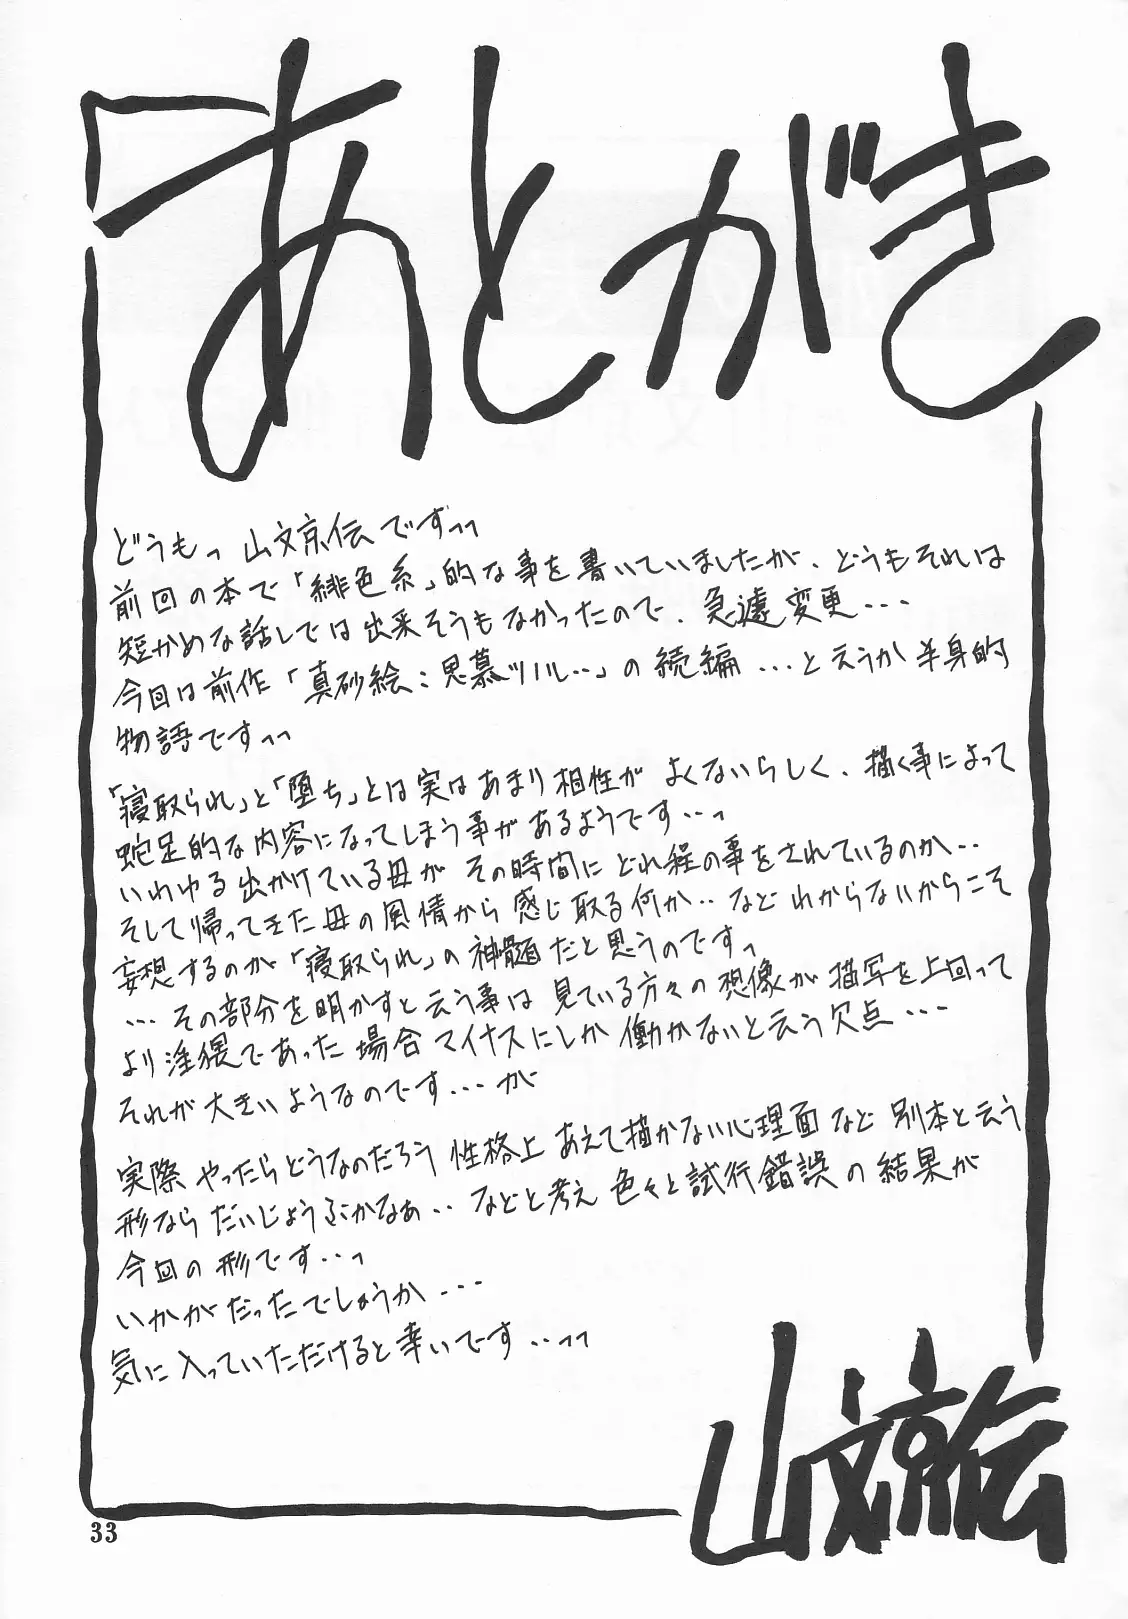 あとがき
どうもっ 山文京伝ですっっ
前回の本で「緋色系」的な事を書いていましたが、どうもそれは
短かめな話しでは出来そうもなかったので、急遽変更・・・
今回は前作「真砂絵：思慕ツノル・・」の続編・・・と云うか半身的
物語ですっっ
「寝取られ」と「堕ち」とは実はあまり相性がよくないらしく、描く事によって
蛇足的な内容になってしまう事があるようです・・・っ
いわゆる出かけている母がその時間にどれ程の事をされているのか・・
そして帰ってきた母の風情から感じ取る何か・・などわからないからこそ
妄想するのが「寝取られ」の神髄だと思うのですっ
・・・その部分を明かすと云う事は見ている方々の想像が描写を上回って
より淫猥であった場合マイナスにしか働かないと云う欠点・・・
それが大きいようなのです・・・が
実際やったらどうなのだろう性格上あえて描かない心理面など別本と云う
形ならだいじょうぶかなぁ・・などと考え色々と試行錯誤の結果が
今回の形です・・っ
いかがだったでしょうか・・・
気に入っていただけると幸いです・・っっ
山文京伝
33